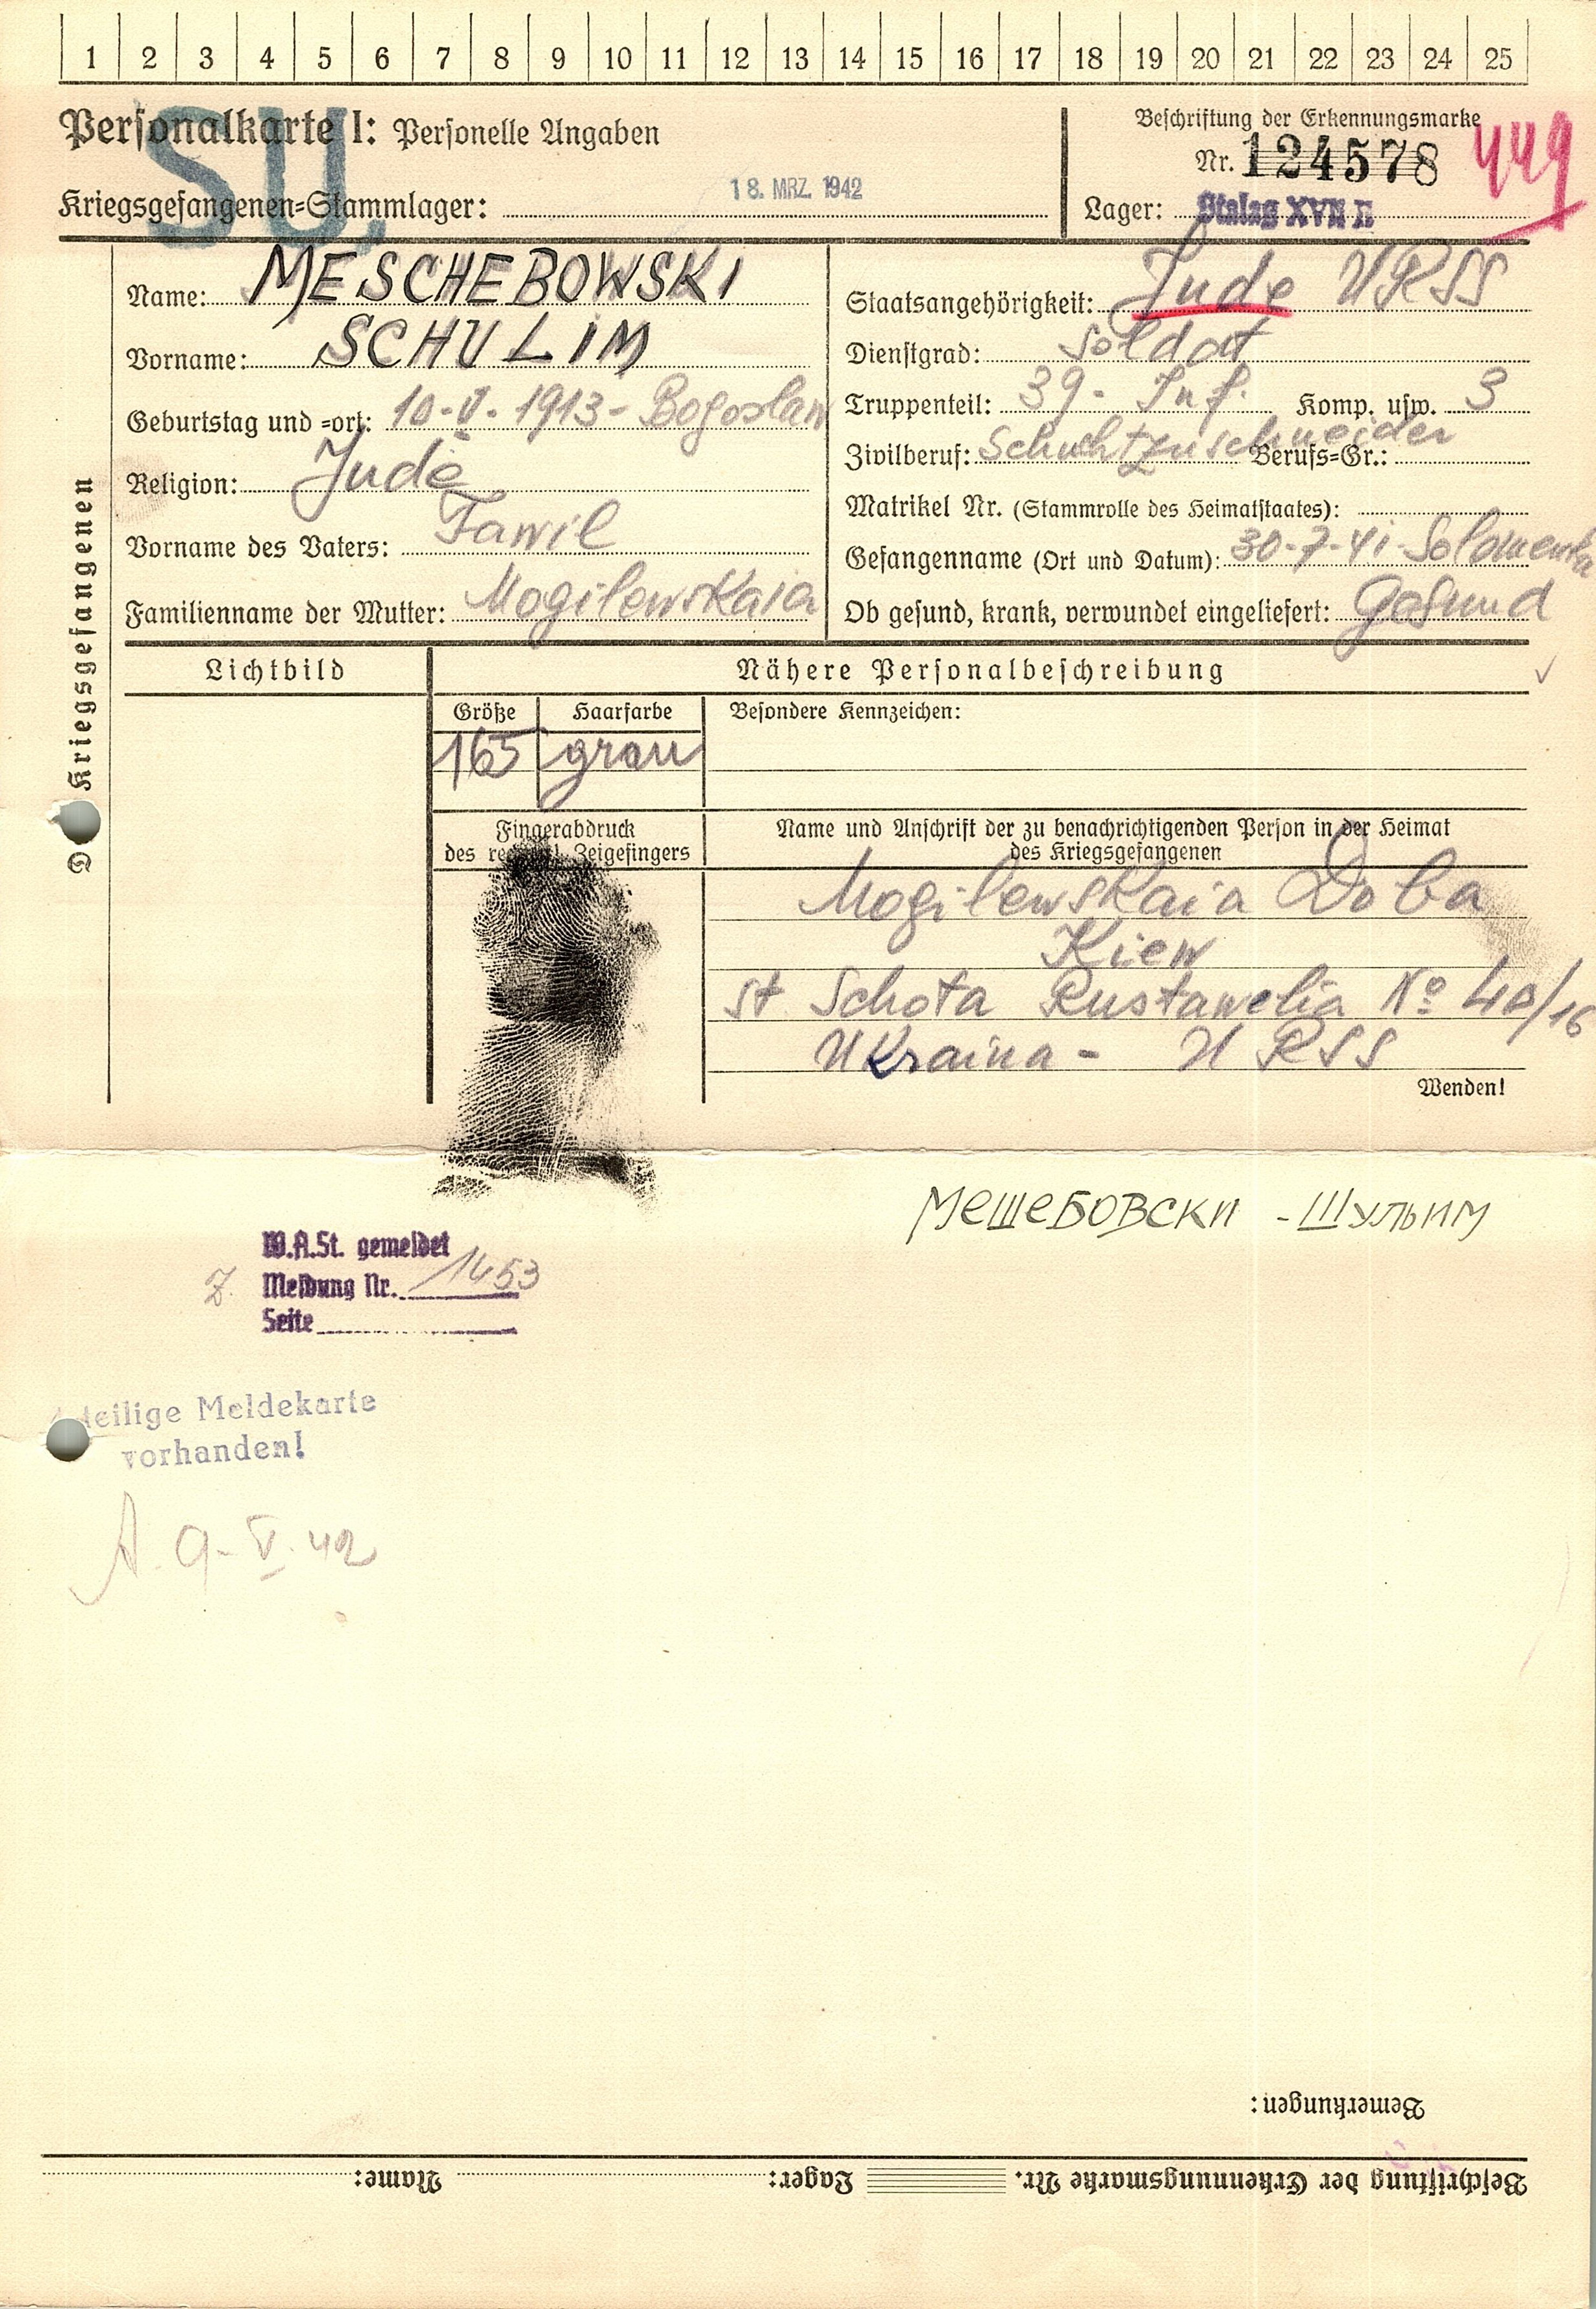 1 2 3 4 5 6 7 8 9 10 11 12 13 14 15 16 17 18 19 20 21 22 23 24 25
Personalkarte I: Personelle Angaben
SU.
Kriegsgefangenen-Stammlager:
18. MRZ. 1942
Beschriftung der Erkennungsmarke
Nr. 124578
449
Lager: Stalag XVII B
Des Kriegsgefangenen
Name: MESCHEBOWSKI
Vorname: SCHULIM
Geburtstag und -ort: 10-V-1913- Bogoslaw
Religion: Jude
Vorname des Vaters: Fawil
Familienname der Mutter: Mogilewskaia
Staatsangehörigkeit: Jude URSS
Dienstgrad: Soldat
Truppenteil: 39- Inf. Komp. usw. 3
Zivilberuf: Schuhtzuschneider Berufs-Gr.:
Matrikel Nr. (Stammrolle des Heimatstaates):
Gefangenname (Ort und Datum): 30-7-41-Solomenka
Ob gesund, krank, verwundet eingeliefert: Gesund
Lichtbild
Nähere Personalbeschreibung
Größe Haarfarbe Besondere Kennzeichen:
165 grau
Fingerabdruck
des Zeigefingers
Name und Anschrift der zu benachrichtigenden Person in der Heimat
des Kriegsgefangenen
Mogilewskaia Doba
Kiew
st Schota Rustawelia Nº 40/16
Ukraina - URSS
Wenden!
Мешебовски - Шульим
W.A.St. gemeldet
Z. Meldung Nr. 1453
Seite
teilige Meldekarte
vorhanden!
A. 9-V-42
Bemerkungen:
Beschriftung der Erkennungsmarke Nr. Lager: Name: